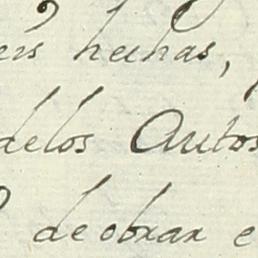 hechas,
delos Autos
deobrar e